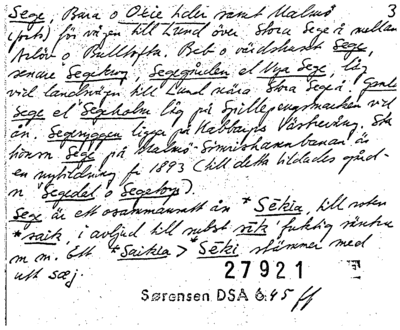 3
Sege, Bara o Oxie hder samt Malmö
(förb) för vägen till Lund över Stora Segeå mellan
Arlöv o Bulltofta. Beb o värdshuset Sege,
senare Segekrog, Segegården el Nya Sege, låg
vid landsvägen till Lund nära Stora Segeå. Gamla
Sege el Segeholm låg på Spillepengsmarken vid
ån. Segeryggen ligger på Kabbarps Västravång. Sta-
tionen Sege på Malmö-Simrishamnbanan är
en nybildning fr 1893 (till detta bildades gård-
n Segedal o Segetorp).
Sege är ett osammansatt ån *Sēkia, till roten
*saik, i avljud till subst sik 'fuktig sänka
m m. Ett *Saikia > *Sēki stämmer med
utt sæj.
27921
Sørensen DSA 6:45 ff